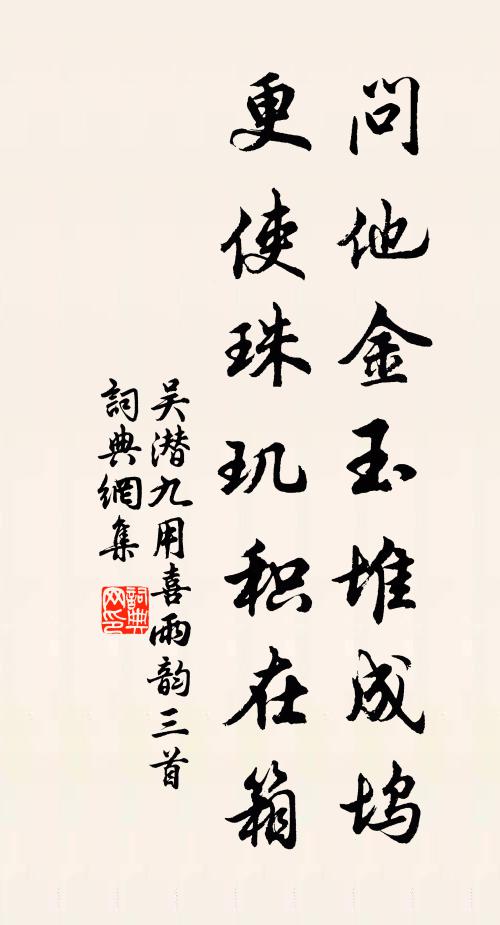 问他金玉堆成坞
更使珠玑积在箱
吴潜九用喜雨韵三首
詞典網集
詞典网印